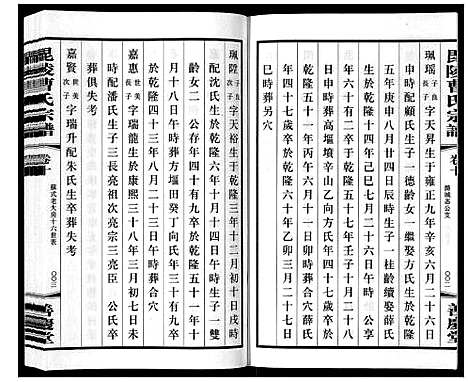 毘陵曹氏宗譜
卷十
善慶堂
珮瑤 子良長子 字天昇生於雍正九年辛亥六月二十六日
申時配顧氏生子一德齡女一繼娶方氏生於
五年庚申八月廿四日辰時生子一桂齡續娶薛氏
年六十有二生於乾隆十四年己巳七月二十六日午時公享
年四十歲葬高堰墳辛山乙向顧氏享年三十歲卒於
乾隆五十一年丙午六月十一日午時葬合穴薛氏
年四十七歲卒於乾隆六十年乙卯三月二十七日
巳時葬另穴
珮陞 子良次子 字天裕生於乾隆三年十二月初十日戌時
配沈氏生於乾隆八年二月十一日午時生子一雙
齡女二公存年四十有九卒於乾隆五十一年十
月十八日午時葬方堰田癸丁向氏年三十有九卒
於乾隆四十三年八月二十三日午時葬合穴
嘉惠 世美長子 字瑞龍生於康熙三十八年三月初五日未
時配潘氏生子三長亮祖次亮宗三亮臣公氏卒
葬俱失考
嘉賢 世美次子 字瑞升配朱氏生卒葬失考
毘陵曹氏宗譜
卷十
蘇式老大房十六世表
善慶堂